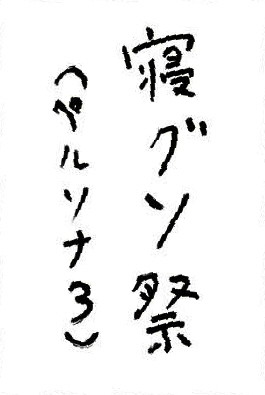 寝グソ祭
(ペルソナ3)